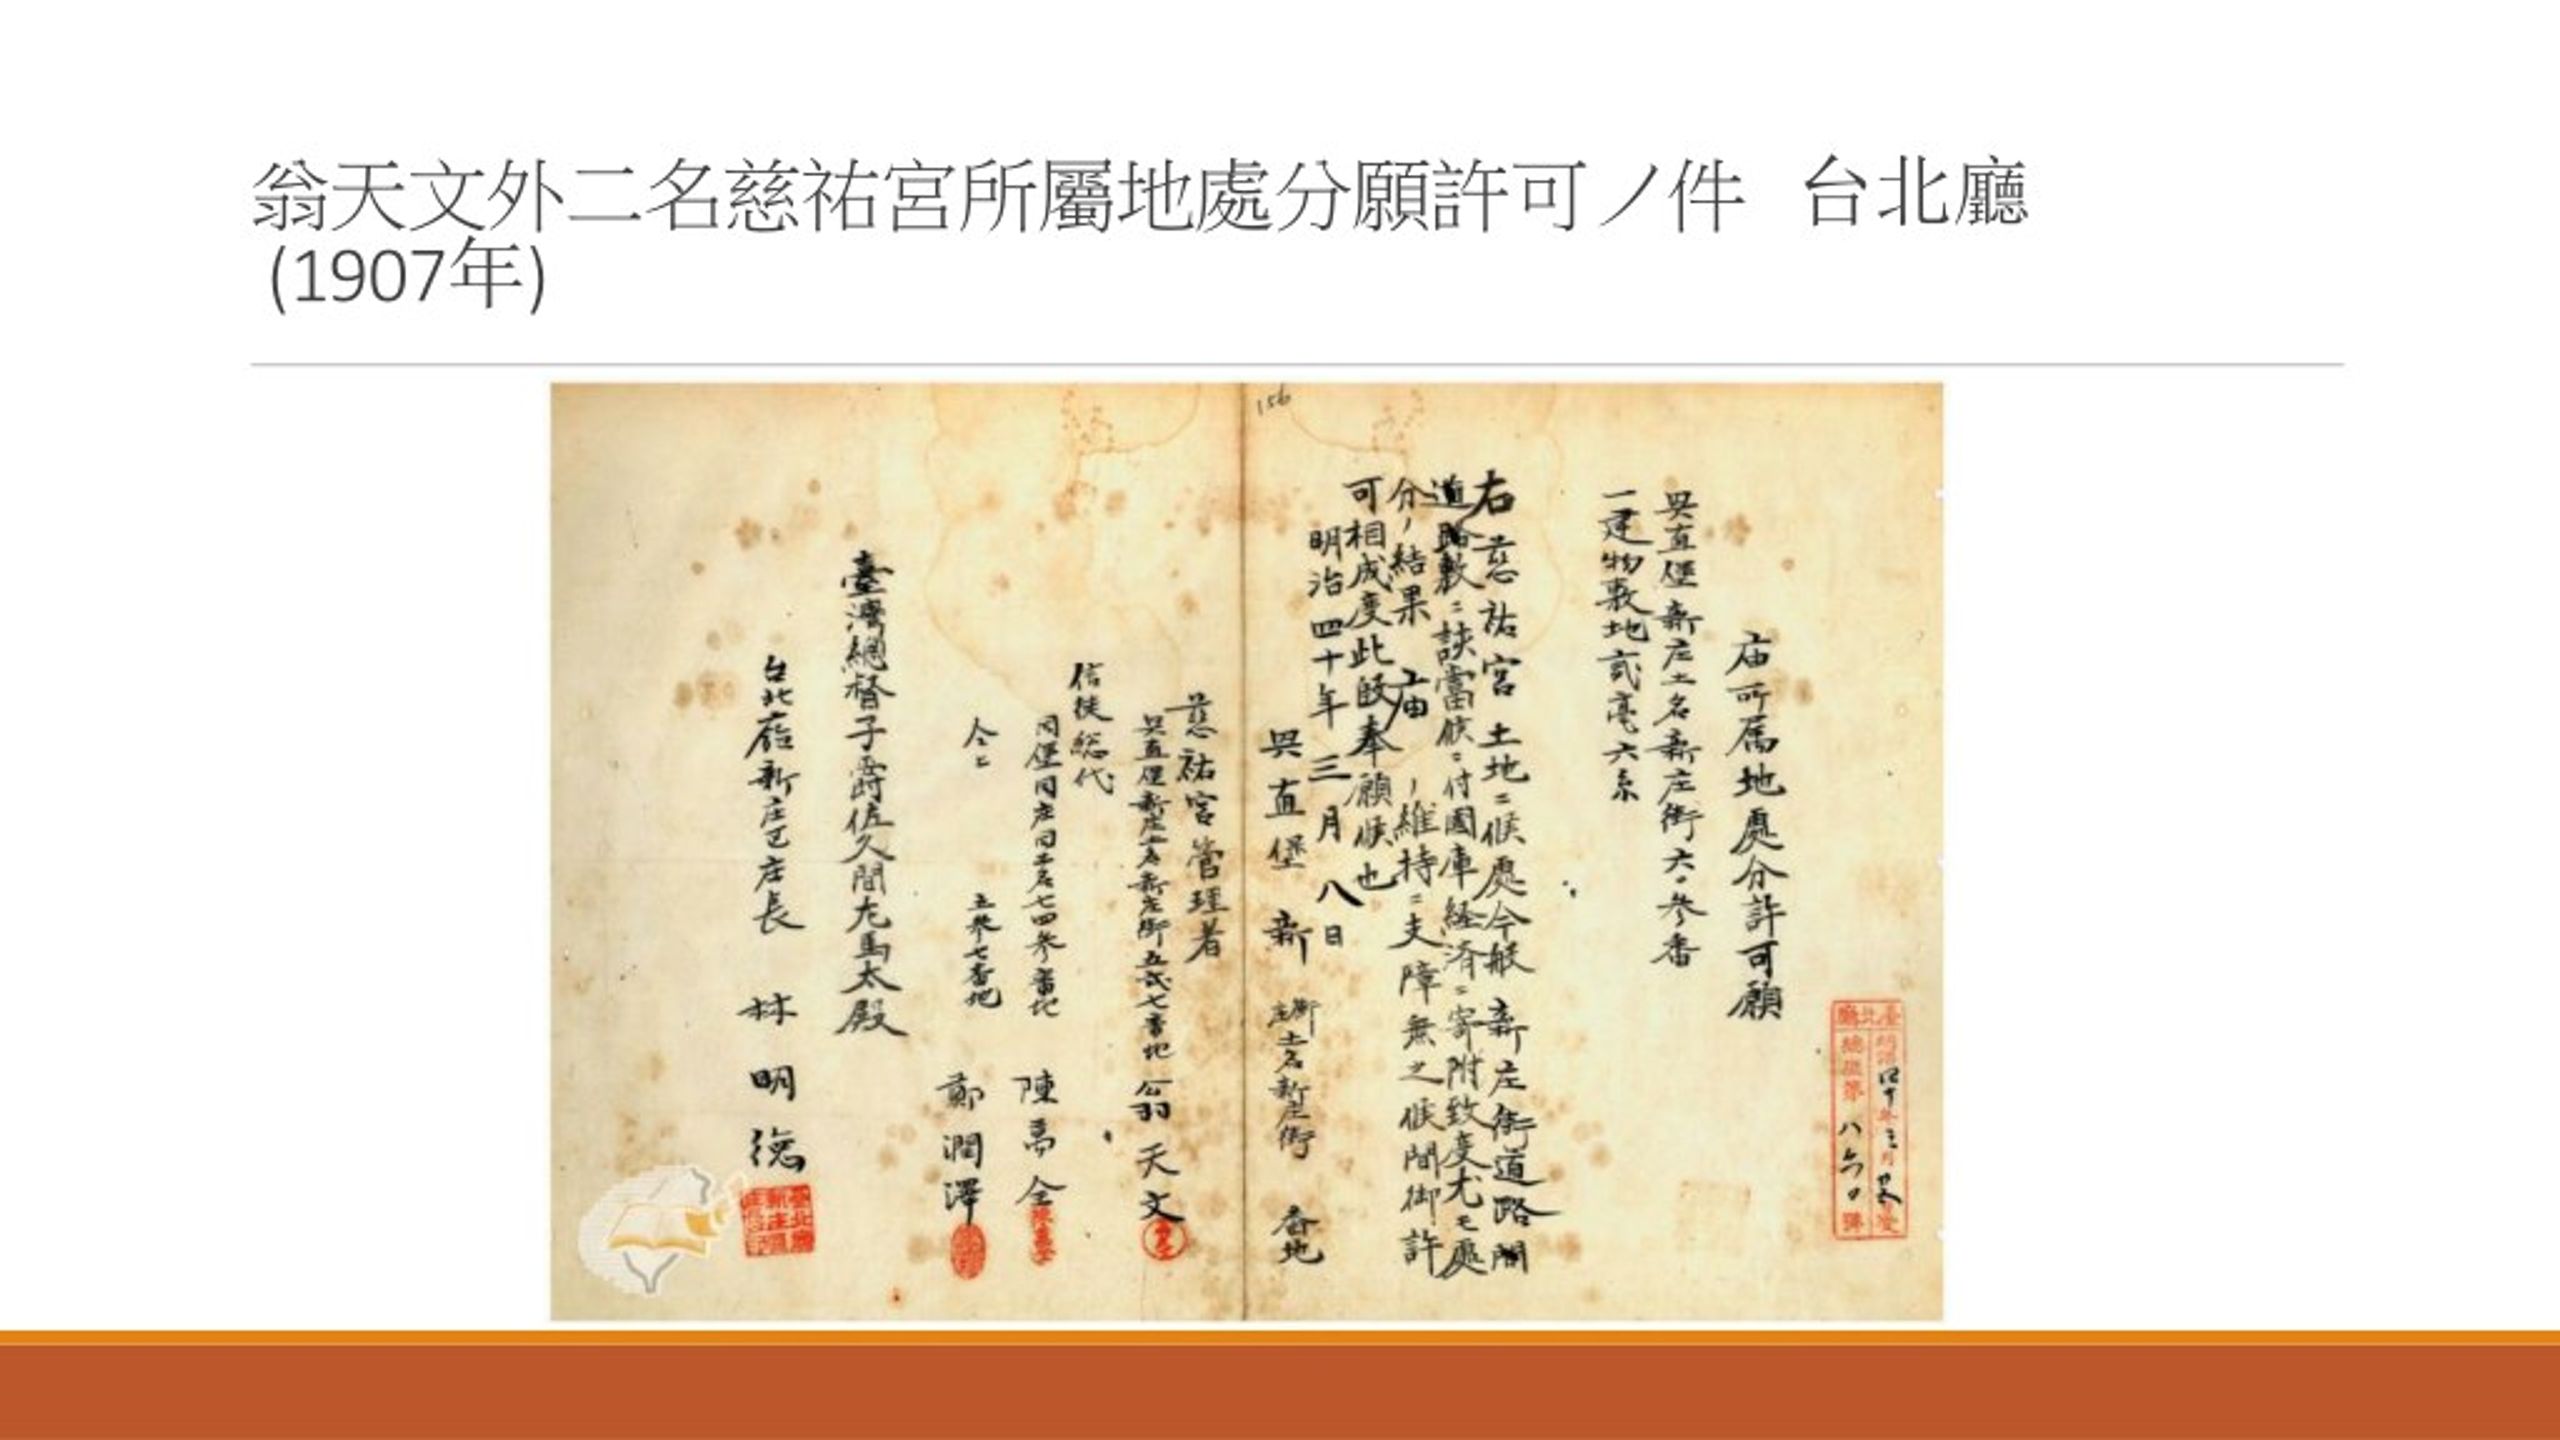 翁天文外二名慈祐宮所屬地處分願許可ノ件 台北廳
(1907年)
156
庙所属地處分許可願
興直堡新庄土名新庄街六〇参番
一建物敷地貮毫六糸
右慈祐宮土地ニ候處今般新庄街道路開
道路敷ニ該當候ニ付國庫経済ニ寄附致度尤モ處
分ノ結果庙ノ維持ニ支障無之候間御許
可相成度此段奉願候也
明治四十年三月八日
興直堡新庄街土名新庄街 番地
慈祐宮管理者
興直堡新庄土名新庄街五貮七番地 翁天文
信徒総代
同堡同庄同土名七四参番地 陳萬全
仝上 五参七番地 鄭潤澤
臺灣總督子爵佐久間左馬太殿
台北廳新庄区庄長 林明德
臺北廳
明治四十年三月
總庶第八六〇號